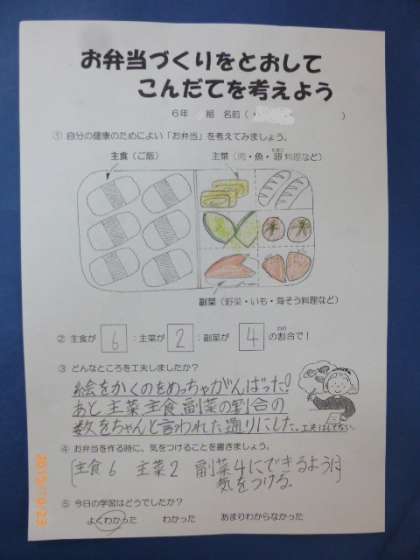 お弁当づくりをとおして
こんだてを考えよう
6年 組 名前( )
① 自分の健康のためによい「お弁当」を考えてみましょう。
主食(ご飯) 主菜(肉・魚・卵料理など)
副菜(野菜・いも・海そう料理など)
② 主食が 6 : 主菜が 2 : 副菜が 4 の割合で!
③ どんなところを工夫しましたか?
絵をかくのをめっちゃがんばった!
あと主菜主食副菜の割合の
数をちゃんと言われた通りにした。工夫はしてない。
④ お弁当を作る時に、気をつけることを書きましょう。
主食6 主菜2 副菜4にできるように
気をつける。
⑤ 今日の学習はどうでしたか?
よくわかった わかった あまりわからなかった